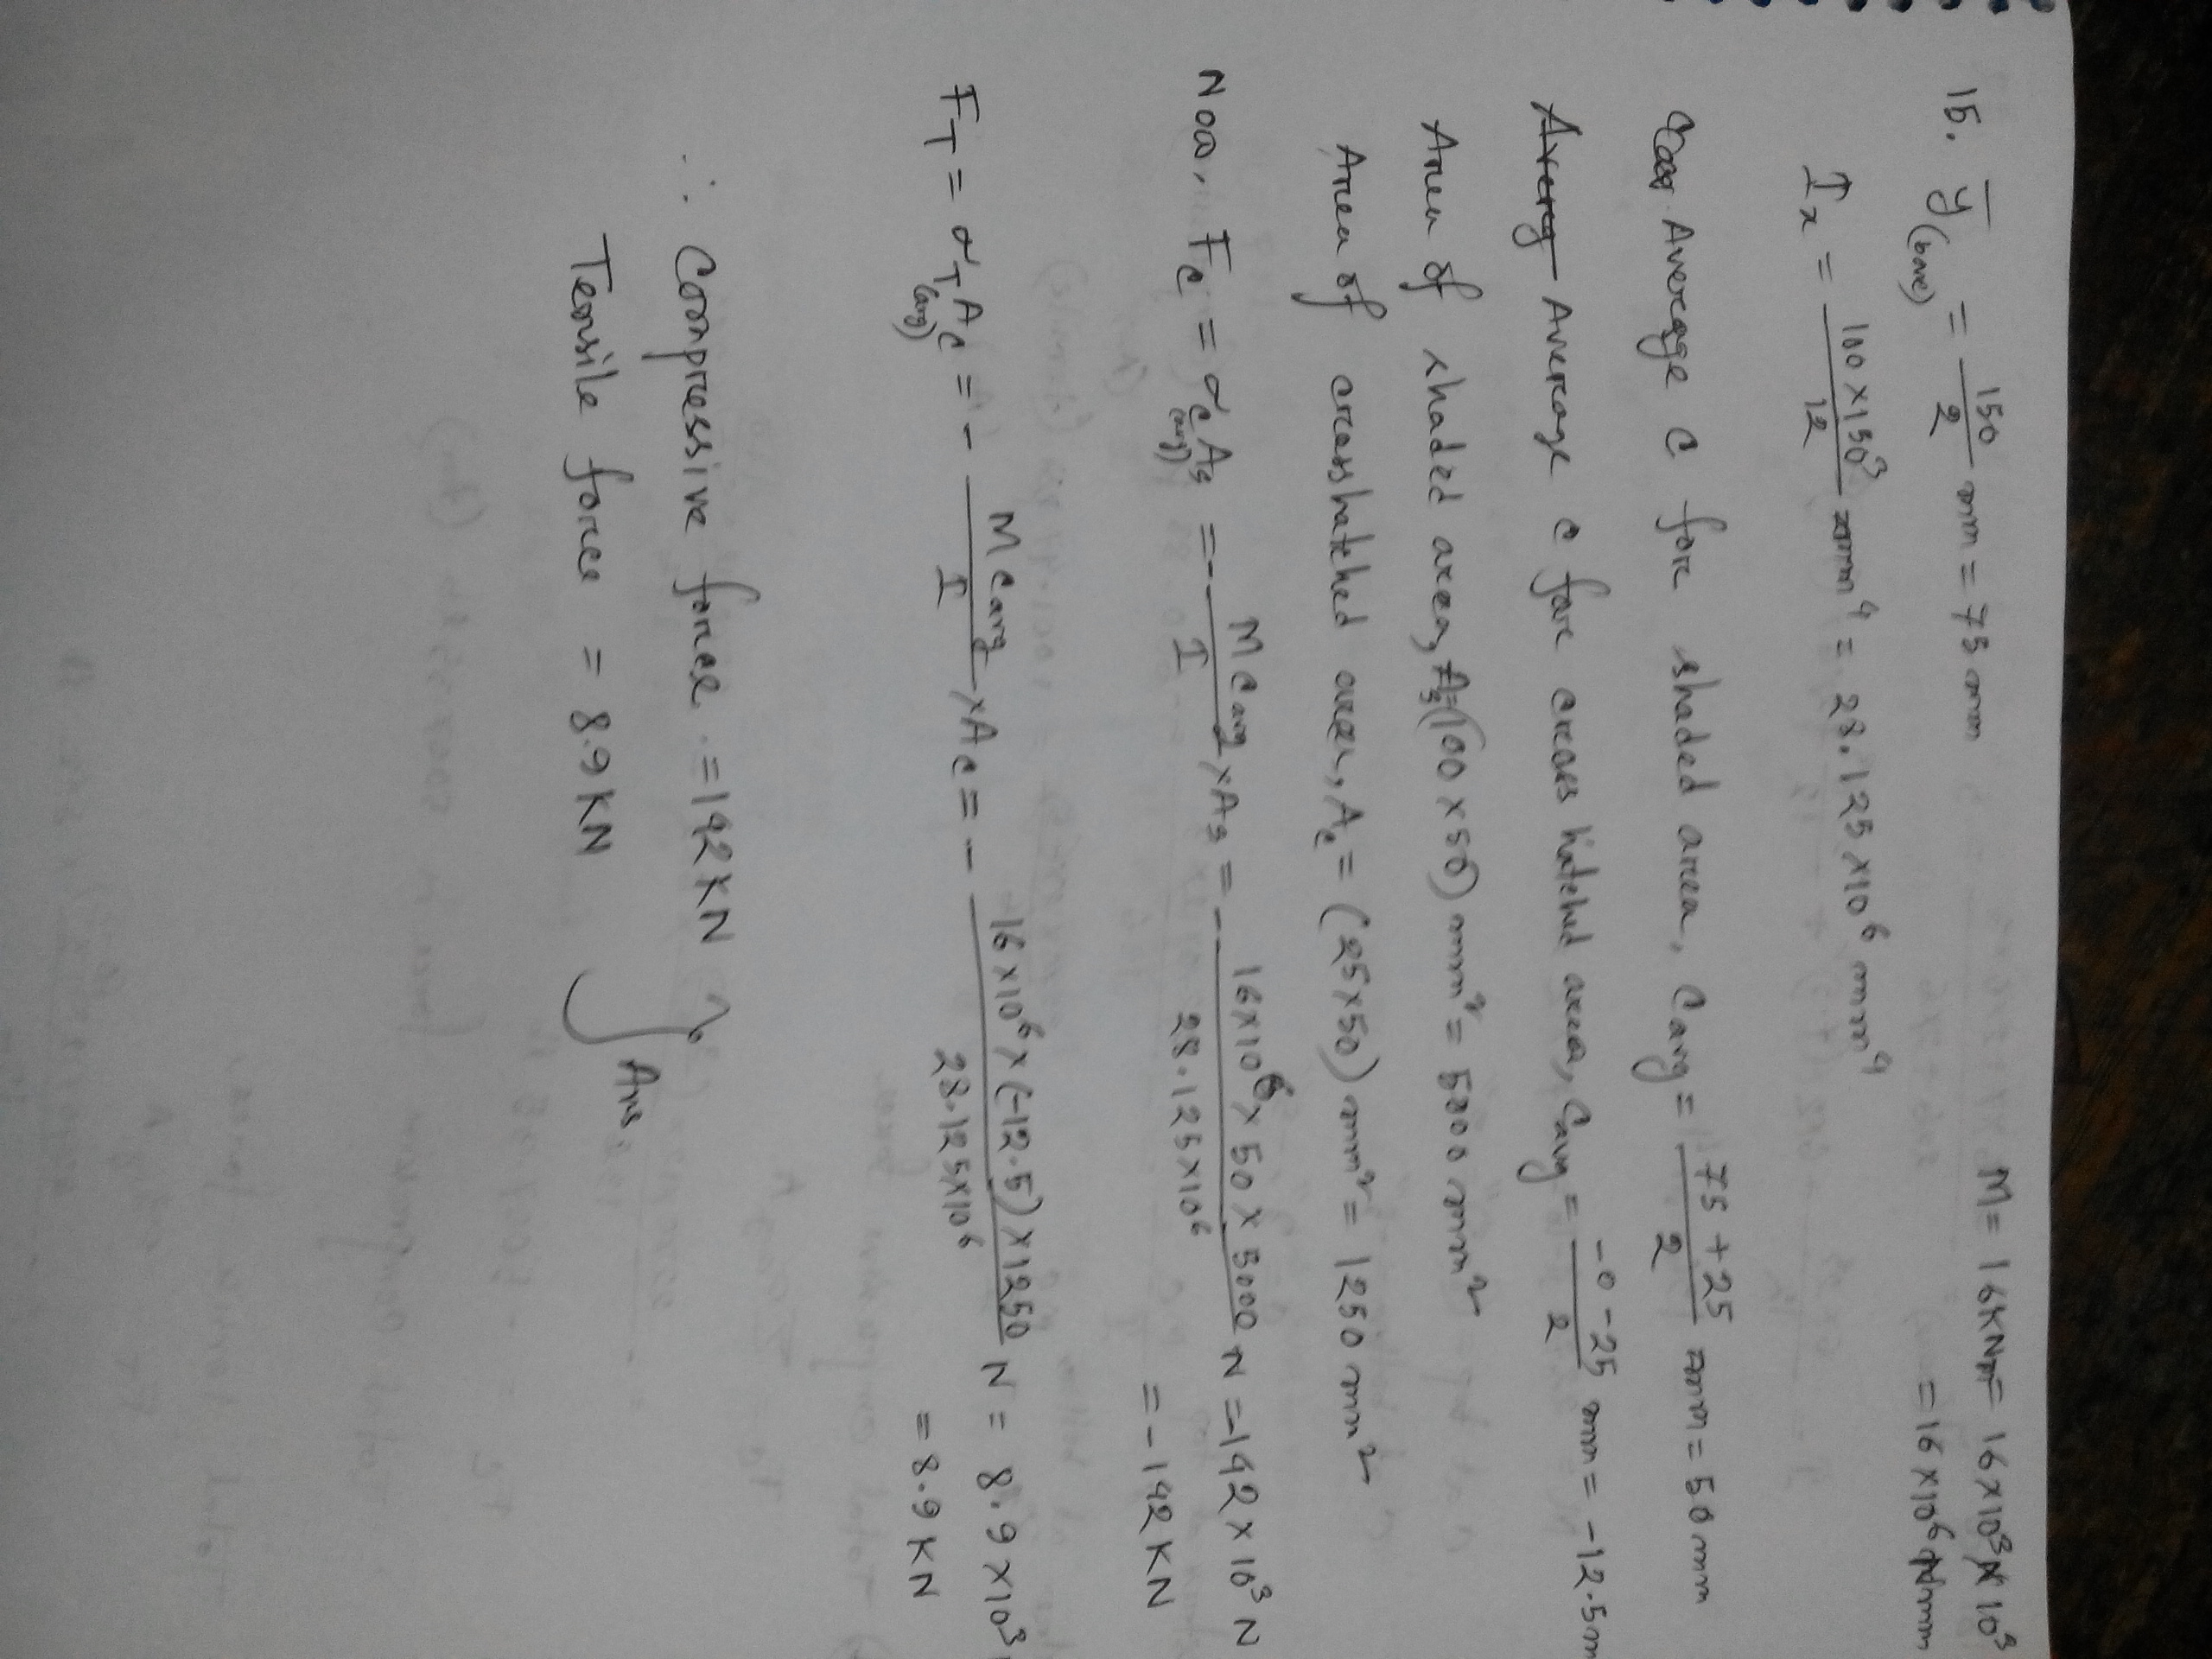 15. ȳ(base) = 150/2 mm = 75 mm M = 16 KNm = 16×10³N×10³
= 16×10⁶ Nmm
Iₓ = 100×150³/12 mm⁴ = 28.125×10⁶ mm⁴
Average c for shaded area, Cavg = 75+25/2 mm = 50 mm
Average c for cross hatched area, Cavg = -0-25/2 mm = -12.5m
Area of shaded area, As=(100×50) mm² = 5000 mm²
Area of crosshatched area, Ac = (25×50) mm² = 1250 mm²
Now, Fc = σc(avg) As = - M Cavg/I ×As = - 16×10⁶×50×5000/28.125×10⁶ N = -142×10³ N
= -142 KN
FT = σT(avg) Ac = - M Cavg/I ×Ac = - 16×10⁶×(-12.5)×1250/28.125×10⁶ N = 8.9×10³
= 8.9 KN
∴ Compressive force = 142 KN
Tensile force = 8.9 KN } Ans